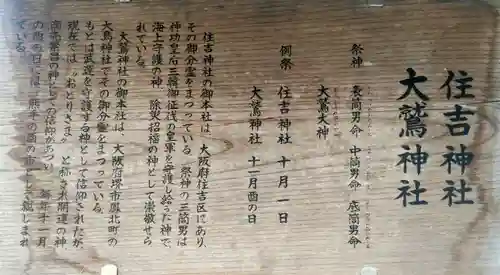 住吉神社
大鷲神社
祭神 表筒男命 中筒男命 底筒男命
大鷲大神
例祭 住吉神社 十月一日
大鷲神社 十一月酉の日
住吉神社の御本社は、大阪府住吉区にあり
その御分霊をまつっている。祭神の三筒男は
神功皇后三韓御征伐の皇軍を守護し給った神で、
海上守護の神、除災招福の神として崇敬せら
れている。
大鷲神社の御本社は、大阪府堺市鳳北町の
大鳥神社でその御分霊をまつっている。
もとは武運を守護する神として信仰されたが、
現在では〝おとりさま〟と称され開運の神
商売繁昌の神としての信仰があつい。毎年十一月
の酉の日には、熊手の酉の市として親しまれ
ている。